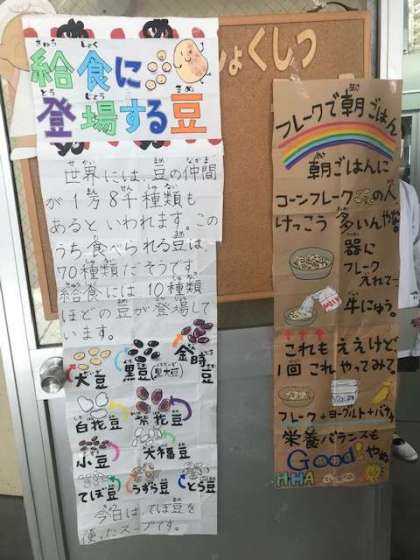 しょくしつ
給食に
登場する豆
世界には、豆の仲間
が1万8千種類も
あるといわれます。この
うち食べられる豆は、
70種類だそうです。
給食には10種類
ほどの豆が登場して
います。
大豆
黒豆
金時豆
白花豆
紫花豆
小豆
大福豆
てぼ豆
うずら豆
とら豆
今日は、てぼ豆を
使ったスープです。
フレークで朝ごはん
朝ごはんに
コーンフレークの人、
けっこう多いんやな
器に
フレーク
入れて、
牛にゅう。
これもええけど
1回これやってみて
フレーク+ヨーグルト+バナナ
栄養バランスも
Good!やね